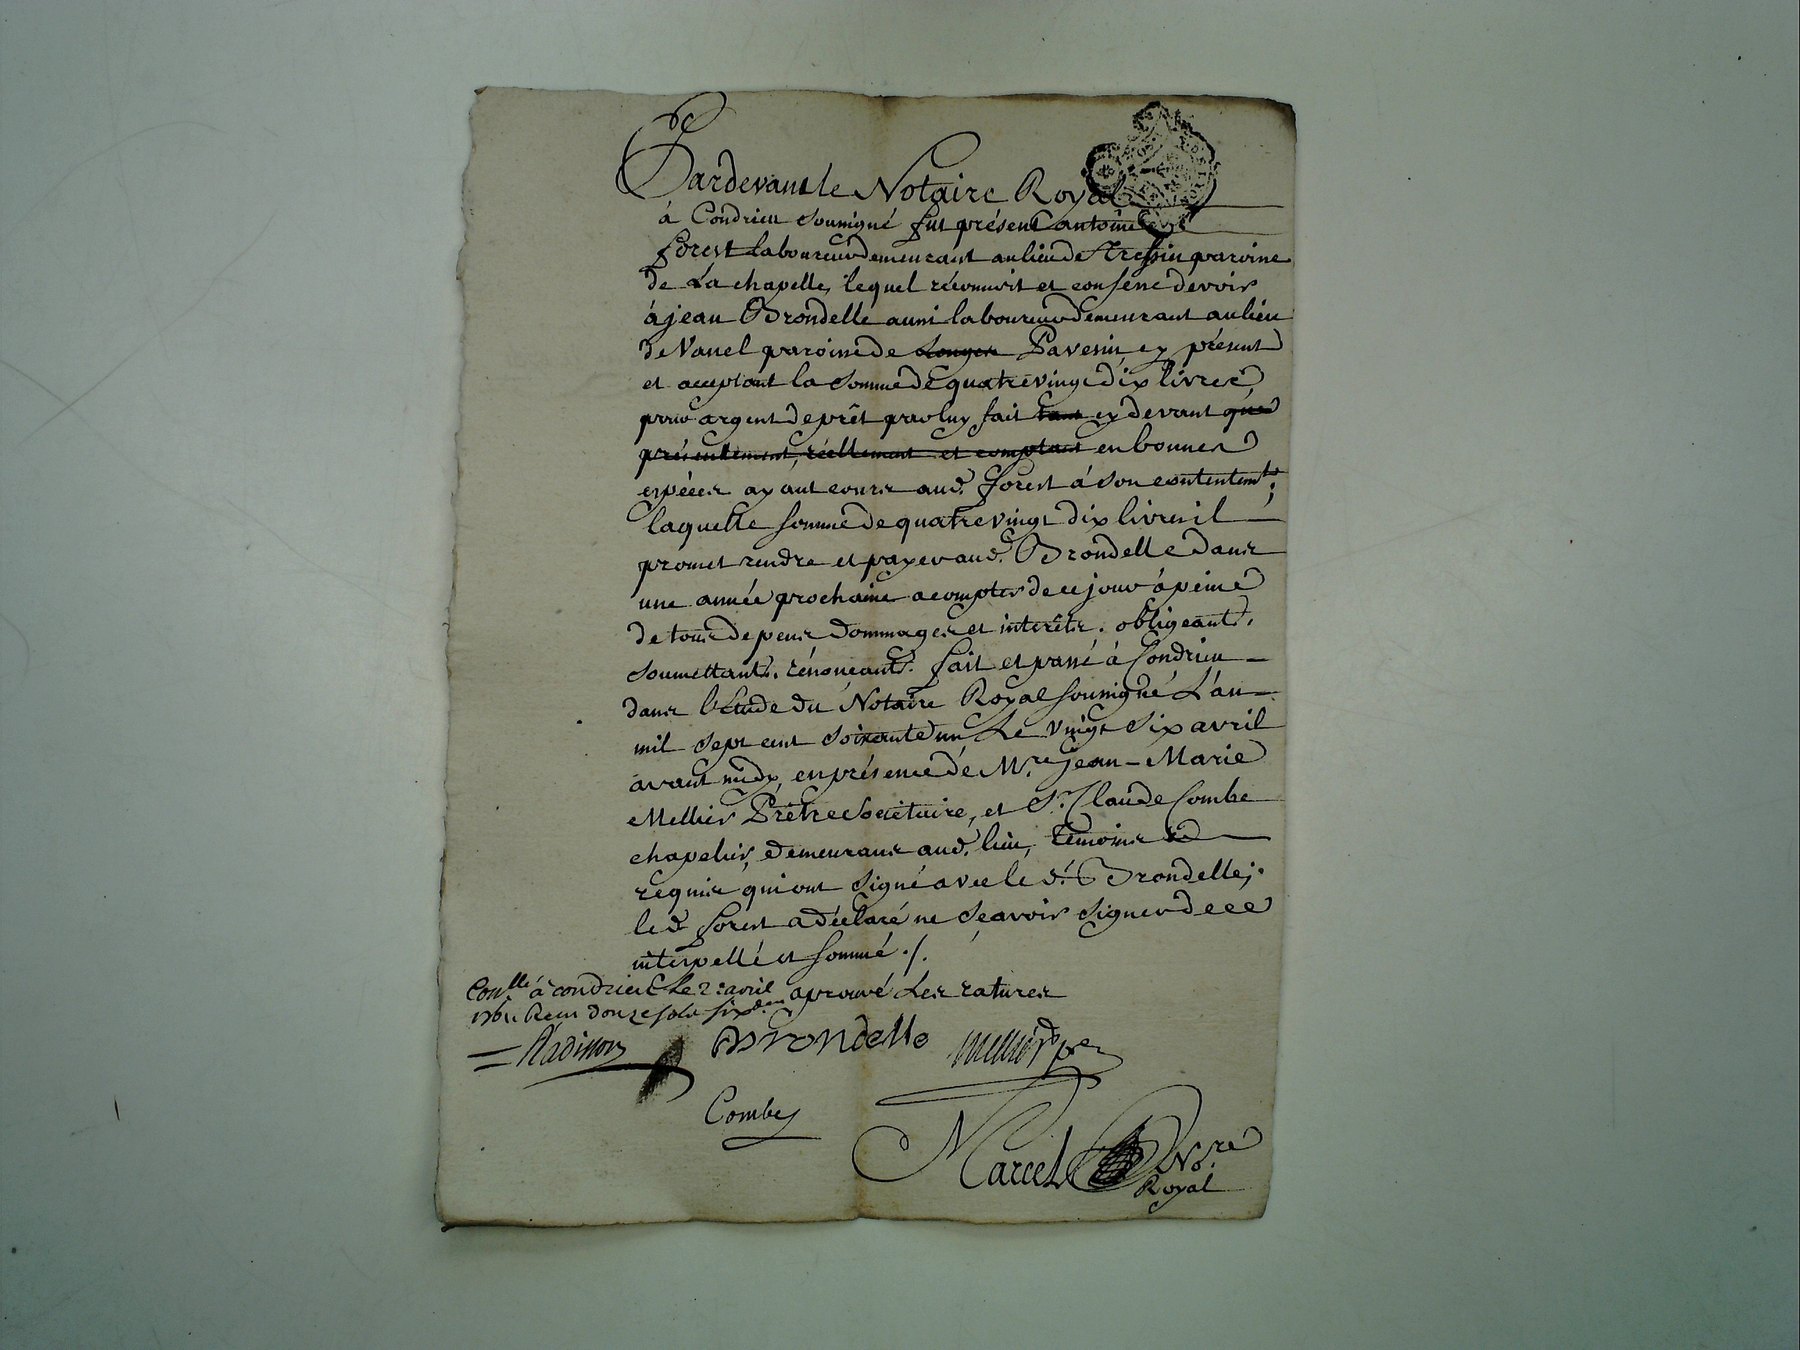 Pardevant le Notaire Royal
à Condrieu soussigné fut présent antoine
forest laboureur demeurant au lieu de Tressin paroisse
de La chapelle, lequel réconnoit et confesse devoir
à jean Brondelle aussi laboureur demeurant au lieu
de Vanel paroisse de Longes Pavesin, cy présent
et acceptant la somme de quatre vingt dix livres
pour argent de prêt par luy fait tant cy devant que
présentement, réellement et comptant en bonnes
espéces ayant cours aud. forest à son contentemt.;
laquelle somme de quatre vingt dix livres il
promet rendre et payer aud. Brondelle dans
une année prochaine a compter de ce jour à peine
de tous depens dommages et interêts. obligeant.
soumettant. rénonçant. fait et passé à Condrieu
dans l'Etude du Notaire Royal soussigné L'an
mil sept cent soixante un Le vingt six avril
avant midy, en présence de Mre. Jean-Marie
Mellier Prêtre Societaire, et Sr. Claude Combe
chapelier, demeurans aud. lieu, témoins
requis, qui ont signé avec le d. Brondelle;
le d. forest a déclaré ne sçavoir signer de ce
interpellé et sommé ./.
aprouvé Les ratures
Conlle. à condrieu Le avril
1761. Reçu douze sols six den.
Brondelle
Combe
Marcel Nore.
Royal